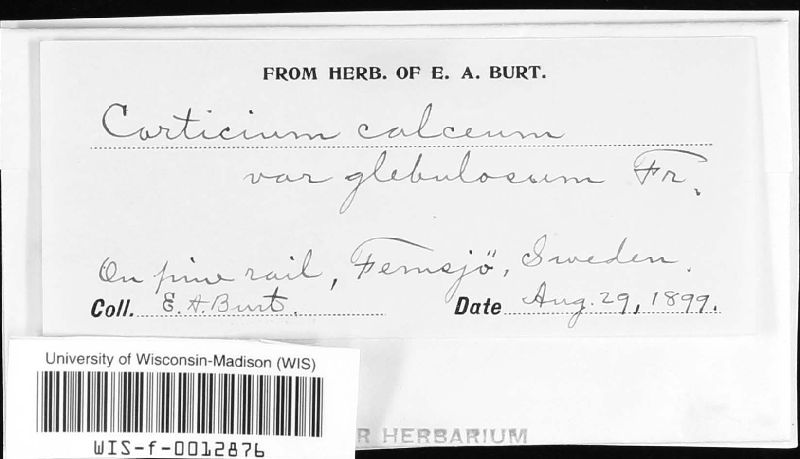 FROM HERB. OF E. A. BURT.
Corticium calceum
var glebulosum Fr.
On pine rail, Femsjö, Sweden.
Coll. E. A. Burt. Date Aug. 29, 1899.
University of Wisconsin-Madison (WIS)
WIS-f-0012876
R HERBARIUM